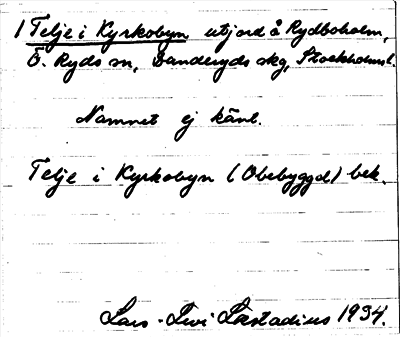 1 Telje i Kyrkobyn utjord å Rydboholm,
Ö. Ryds sn, Danderyds skg, Stockholms l.
Namnet ej känt.
Telje i Kyrkobyn (Obebyggd) bek.
Lars-Levi Læstadius 1934.